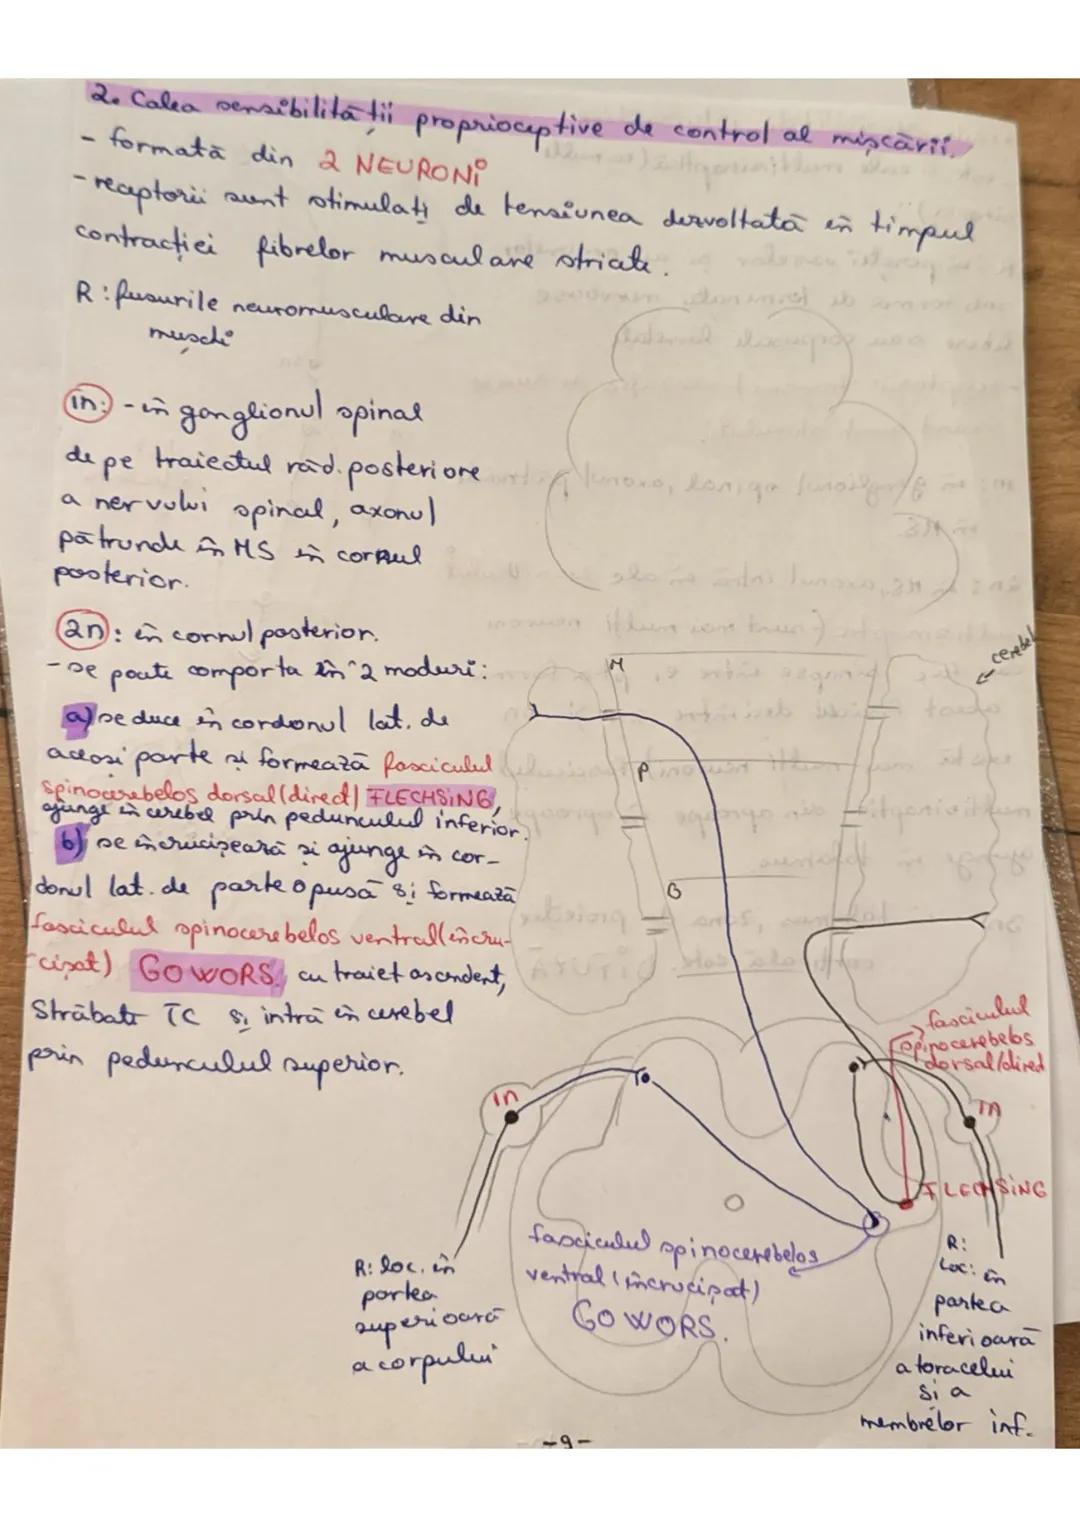 2. Calea sensibilității proprioceptive de control al mișcării.
- formată din 2 NEURONI
- receptorii sunt stimulați de tensiunea dezvoltată în timpul
contracției fibrelor musculare striate.
R: fusurile neuromusculare din
mușchi
1n: - în ganglionul spinal
de pe traiectul răd. posteriore
a nervului spinal, axonul
pătrunde în MS în cornul
posterior.
2n: în cornul posterior.
- se poate comporta în 2 moduri:
a) se duce în cordonul lat. de
aceași parte și formează fasciculul
spinocerebelos dorsal (direct) FLECHSING,
ajunge în cerebel prin pedunculul inferior.
b) se încrucișează și ajunge în cor-
donul lat. de parte opusă și formează
fasciculul spinocerebelos ventral (încru-
cișat) GOWORS, cu traiet ascendent,
Străbate TC și intră în cerebel
prin pedunculul superior.
cerebel
M
P
B
fasciculul
spinocerebelos
dorsal/direct
1n
1n
FLECHSING
fasciculul spinocerebelos
ventral (încrucișat)
GOWORS.
R: loc. în
partea
superioară
a corpului
R:
Loc: în
partea
inferioară
a toracelui
și a
membrelor inf.
-9-